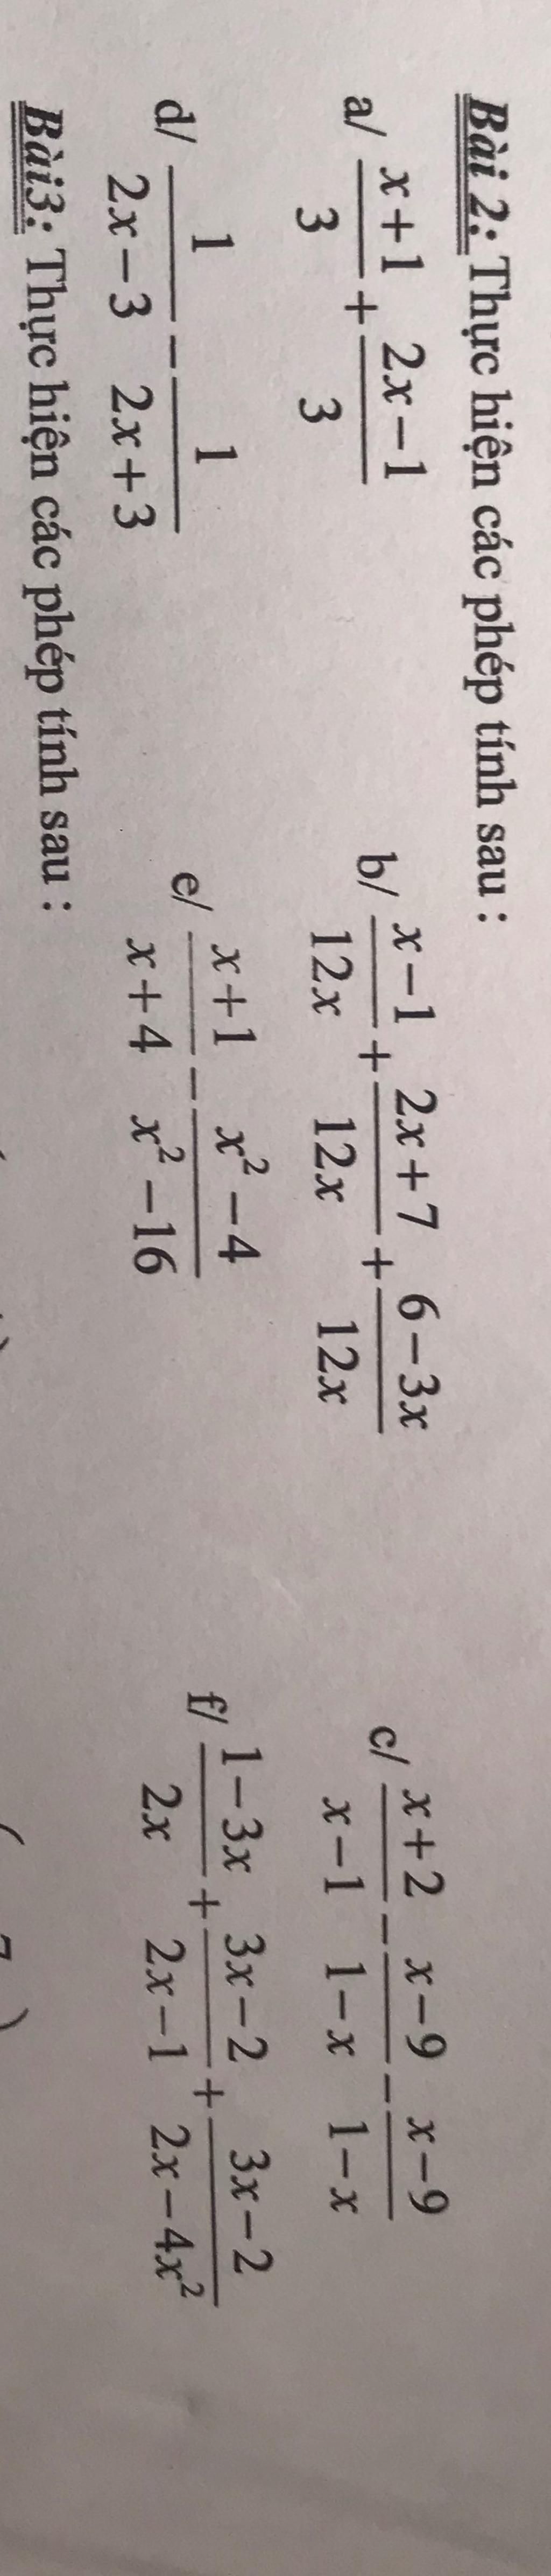 Bài 2: Thực hiện các phép tính sau :
a/ \frac{x+1}{3}+\frac{2x-1}{3} b/ \frac{x-1}{12x}+\frac{2x+7}{12x}+\frac{6-3x}{12x} c/ \frac{x+2}{x-1}-\frac{x-9}{1-x}-\frac{x-9}{1-x}
d/ \frac{1}{2x-3}-\frac{1}{2x+3} e/ \frac{x+1}{x+4}-\frac{x^2-4}{x^2-16} f/ \frac{1-3x}{2x}+\frac{3x-2}{2x-1}+\frac{3x-2}{2x-4x^2}
Bài3: Thực hiện các phép tính sau :